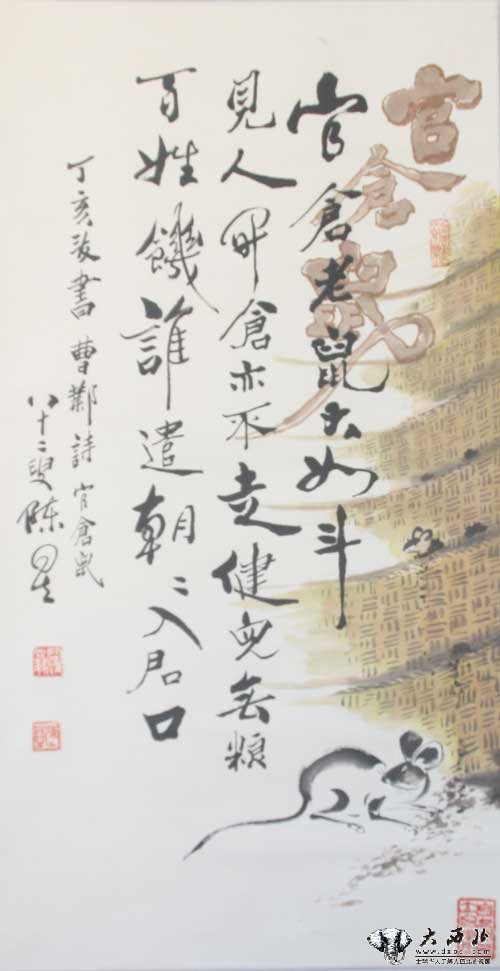 官倉鼠
官倉老鼠大如斗
見人開倉亦不走健兒無糧
百姓饑誰遣朝〻入君口
丁亥書曹鄴詩官倉鼠
八十二叟陈
大西北